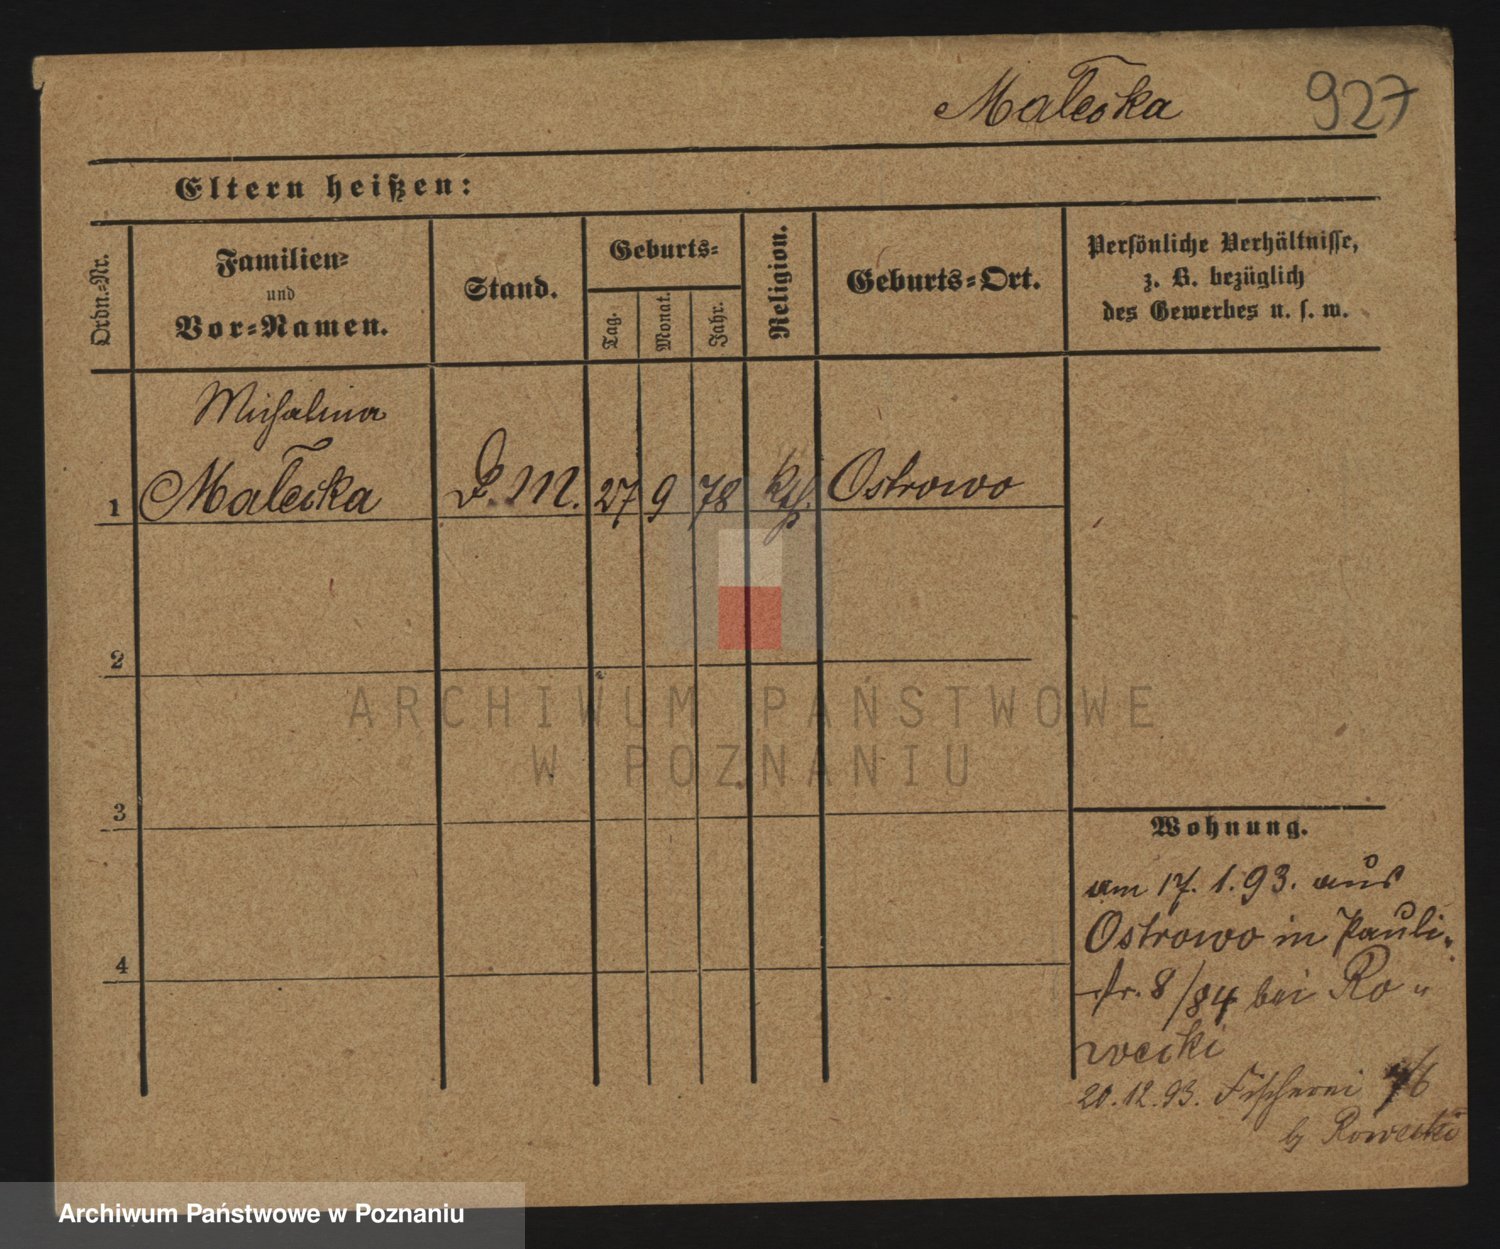 Małecka 927
Eltern heißen:
Ordn.-Nr.
Familien-
und
Vor-Namen.
Stand.
Geburts-
Tag.
Monat.
Jahr.
Religion.
Geburts-Ort.
Persönliche Verhältnisse,
z. B. bezüglich
des Gewerbes u. s. w.
Michalina
1 Małecka D. M. 27 9 78 kth. Ostrowo
2
3
4
Wohnung.
am 17.1.93. aus
Ostrowo in Pauli-
str. 8/84 bei Ro-
wecki
20.12.93. Fischerei
b/ Rowecki
ARCHIWUM PAŃSTWOWE
W POZNANIU
Archiwum Państwowe w Poznaniu